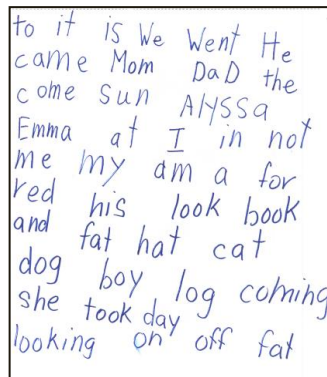 to it is We Went He
came Mom DaD the
come sun Alyssa
Emma at I in not
me my am a for
red his look book
and fat hat cat
dog boy log coming
she took day
looking on off fat